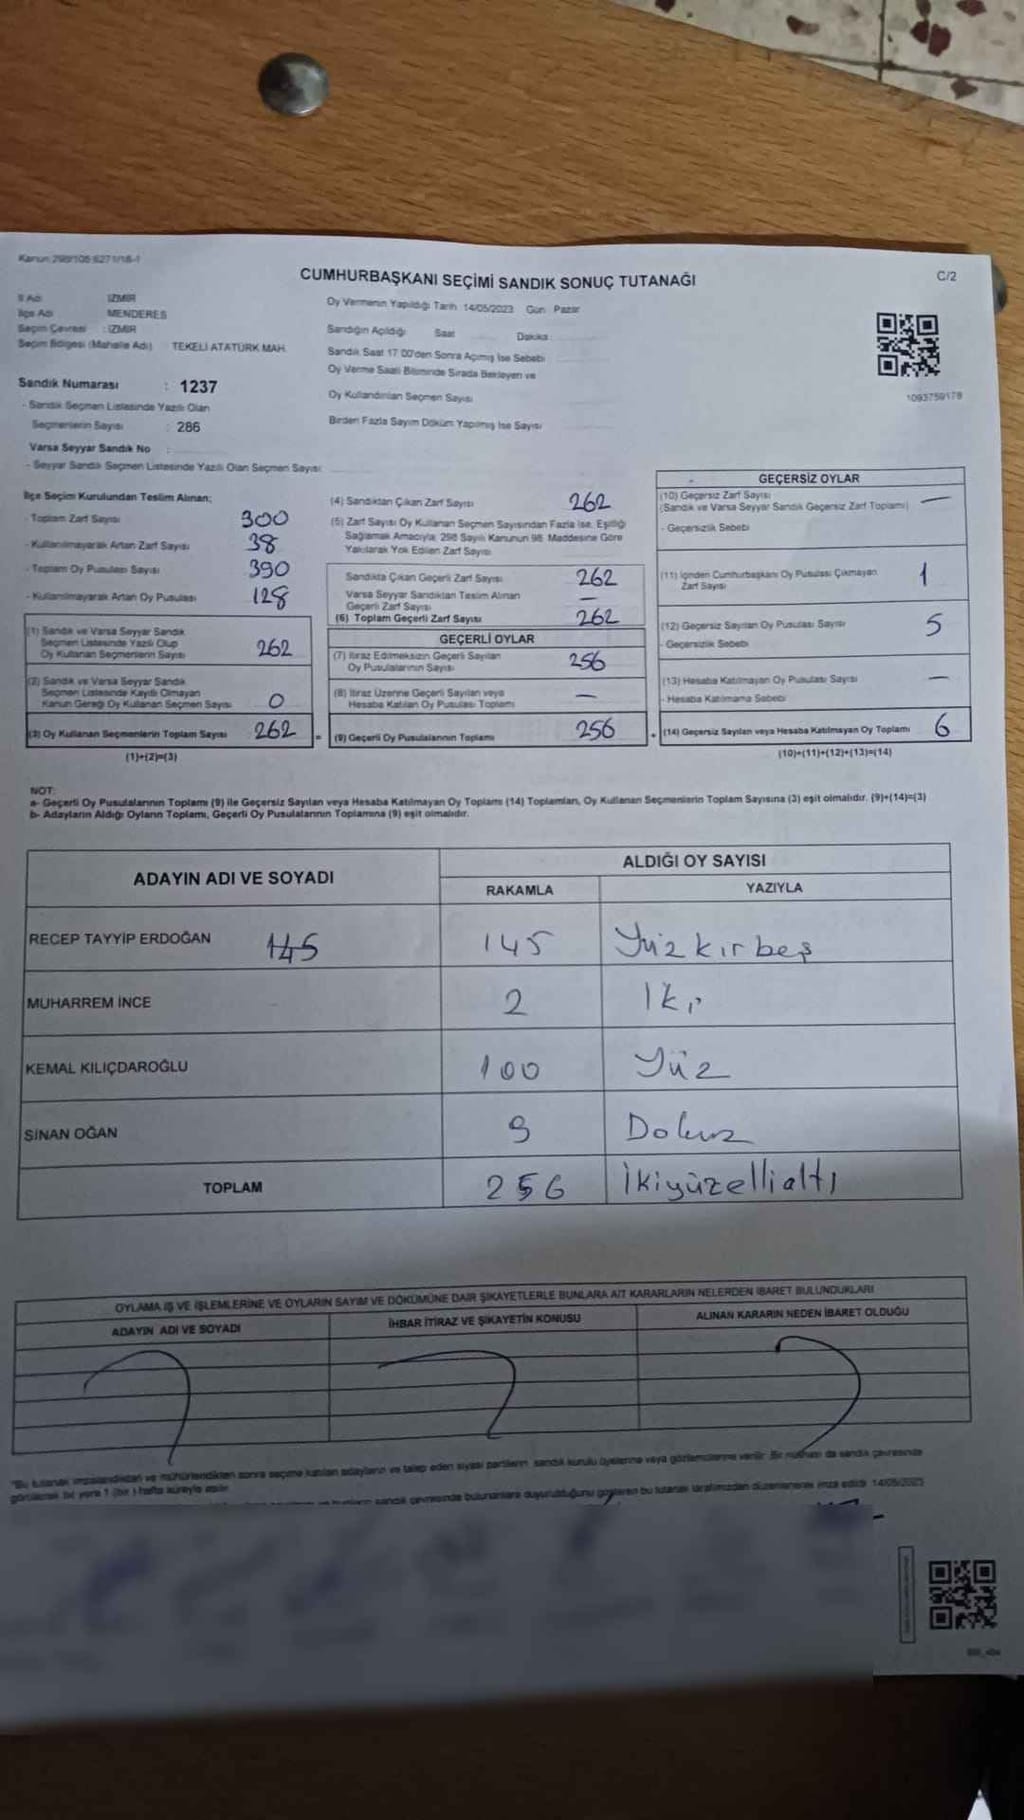 Kanun 298/105 6271/18-1
CUMHURBAŞKANI SEÇİMİ SANDIK SONUÇ TUTANAĞI
C/2
İl Adı İZMİR
İlçe Adı MENDERES
Seçim Çevresi : İZMİR
Seçim Bölgesi (Mahalle Adı) TEKELİ ATATÜRK MAH.
Sandık Numarası : 1237
- Sandık Seçmen Listesinde Yazılı Olan
Seçmenlerin Sayısı : 286
Varsa Seyyar Sandık No :
- Seyyar Sandık Seçmen Listesinde Yazılı Olan Seçmen Sayısı:
Oy Vermenin Yapıldığı Tarih 14/05/2023 Gün Pazar
Sandığın Açıldığı Saat Dakika
Sandık Saat 17.00'den Sonra Açılmış İse Sebebi
Oy Verme Saati Bitiminde Sırada Bekleyen ve
Oy Kullandırılan Seçmen Sayısı
Birden Fazla Sayım Döküm Yapılmış İse Sayısı
1093759178
İlçe Seçim Kurulundan Teslim Alınan;
- Toplam Zarf Sayısı 300
- Kullanılmayarak Artan Zarf Sayısı 38
- Toplam Oy Pusulası Sayısı 390
- Kullanılmayarak Artan Oy Pusulası 128
(1) Sandık ve Varsa Seyyar Sandık
Seçmen Listesinde Yazılı Olup
Oy Kullanan Seçmenlerin Sayısı 262
(2) Sandık ve Varsa Seyyar Sandık
Seçmen Listesinde Kayıtlı Olmayan
Kanun Gereği Oy Kullanan Seçmen Sayısı 0
(3) Oy Kullanan Seçmenlerin Toplam Sayısı 262
(1)+(2)=(3)
(4) Sandıktan Çıkan Zarf Sayısı 262
(5) Zarf Sayısı Oy Kullanan Seçmen Sayısından Fazla İse, Eşitliği
Sağlamak Amacıyla, 298 Sayılı Kanunun 98. Maddesine Göre
Yakılarak Yok Edilen Zarf Sayısı
Sandıkta Çıkan Geçerli Zarf Sayısı 262
Varsa Seyyar Sandıktan Teslim Alınan
Geçerli Zarf Sayısı —
(6) Toplam Geçerli Zarf Sayısı 262
GEÇERLİ OYLAR
(7) İtiraz Edilmeksizin Geçerli Sayılan
Oy Pusulalarının Sayısı 256
(8) İtiraz Üzerine Geçerli Sayılan veya
Hesaba Katılan Oy Pusulası Toplamı —
= (9) Geçerli Oy Pusulalarının Toplamı 256
GEÇERSİZ OYLAR
(10) Geçersiz Zarf Sayısı
(Sandık ve Varsa Seyyar Sandık Geçersiz Zarf Toplamı) —
- Geçersizlik Sebebi
(11) İçinden Cumhurbaşkanı Oy Pusulası Çıkmayan
Zarf Sayısı 1
(12) Geçersiz Sayılan Oy Pusulası Sayısı 5
- Geçersizlik Sebebi
(13) Hesaba Katılmayan Oy Pusulası Sayısı —
- Hesaba Katılmama Sebebi
+ (14) Geçersiz Sayılan veya Hesaba Katılmayan Oy Toplamı 6
(10)+(11)+(12)+(13)=(14)
NOT:
a- Geçerli Oy Pusulalarının Toplamı (9) ile Geçersiz Sayılan veya Hesaba Katılmayan Oy Toplamı (14) Toplamları, Oy Kullanan Seçmenlerin Toplam Sayısına (3) eşit olmalıdır. (9)+(14)=(3)
b- Adayların Aldığı Oyların Toplamı, Geçerli Oy Pusulalarının Toplamına (9) eşit olmalıdır.
ADAYIN ADI VE SOYADI
ALDIĞI OY SAYISI
RAKAMLA YAZIYLA
RECEP TAYYİP ERDOĞAN 145 145 Yüzkırbeş
MUHARREM İNCE 2 İki
KEMAL KILIÇDAROĞLU 100 Yüz
SİNAN OĞAN 9 Dokuz
TOPLAM 256 İkiyüzellialtı
OYLAMA İŞ VE İŞLEMLERİNE VE OYLARIN SAYIM VE DÖKÜMÜNE DAİR ŞİKAYETLERLE BUNLARA AİT KARARLARIN NELERDEN İBARET BULUNDUKLARI
ADAYIN ADI VE SOYADI İHBAR İTİRAZ VE ŞİKAYETİN KONUSU ALINAN KARARIN NEDEN İBARET OLDUĞU
"Bu tutanak imzalandıktan ve mühürlendikten sonra seçime katılan adayların ve talep eden siyasi partilerin sandık kurulu üyelerine veya gözlemcilerine verilir. Bir nüshası da sandık çevresinde
görülecek bir yere 1 (bir) hafta süreyle asılır.
sandık çevresinde bulunanlara duyurulduğunu gösteren bu tutanak tarafımızdan düzenlenerek imza edildi. 14/05/2023